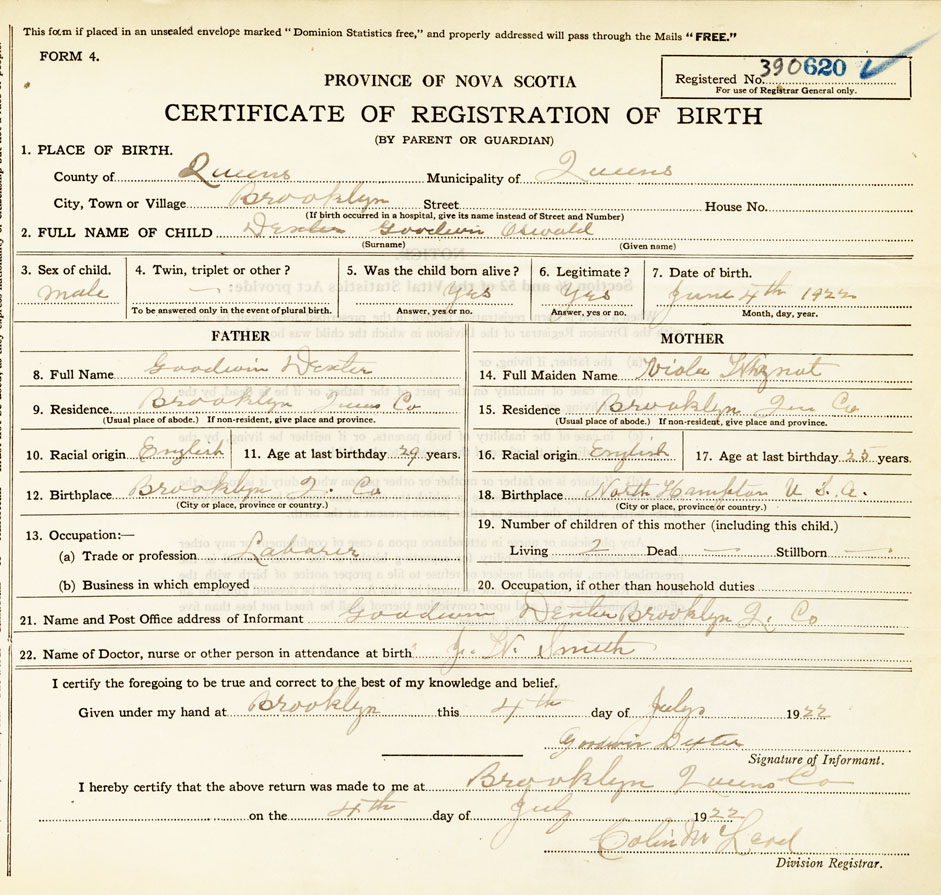 This form if placed in an unsealed envelope marked “Dominion Statistics free,” and properly addressed will pass through the Mails “FREE.”
FORM 4.
PROVINCE OF NOVA SCOTIA
Registered No. 390620
For use of Registrar General only.
CERTIFICATE OF REGISTRATION OF BIRTH
(BY PARENT OR GUARDIAN)
1. PLACE OF BIRTH.
County of Queens Municipality of Queens
City, Town or Village Brooklyn Street House No.
(If birth occurred in a hospital, give its name instead of Street and Number)
2. FULL NAME OF CHILD Dexter Goodwin Oswald
(Surname) (Given name)
3. Sex of child. 4. Twin, triplet or other? 5. Was the child born alive? 6. Legitimate? 7. Date of birth.
male — Yes Yes June 4th 1922
To be answered only in the event of plural birth. Answer, yes or no. Answer, yes or no. Month, day, year.
FATHER MOTHER
8. Full Name Goodwin Dexter 14. Full Maiden Name Viola
9. Residence. Brooklyn Co 15. Residence Brooklyn Co
(Usual place of abode.) If non-resident, give place and province. (Usual place of abode.) If non-resident, give place and province.
10. Racial origin English 11. Age at last birthday 29 years. 16. Racial origin English 17. Age at last birthday years.
12. Birthplace Brooklyn Q. Co 18. Birthplace North Hampton U. S. A.
(City or place, province or country.) (City or place, province or country.)
13. Occupation:— 19. Number of children of this mother (including this child.)
(a) Trade or profession Laborer Living 2 Dead — Stillborn —
(b) Business in which employed 20. Occupation, if other than household duties
21. Name and Post Office address of Informant Goodwin Dexter Brooklyn Q. Co
22. Name of Doctor, nurse or other person in attendance at birth J. W. Smith
I certify the foregoing to be true and correct to the best of my knowledge and belief.
Given under my hand at Brooklyn this 4th day of July 1922
Goodwin Dexter
Signature of Informant.
I hereby certify that the above return was made to me at Brooklyn Queens Co
on the 4th day of July 1922
Colin McLeod
Division Registrar.